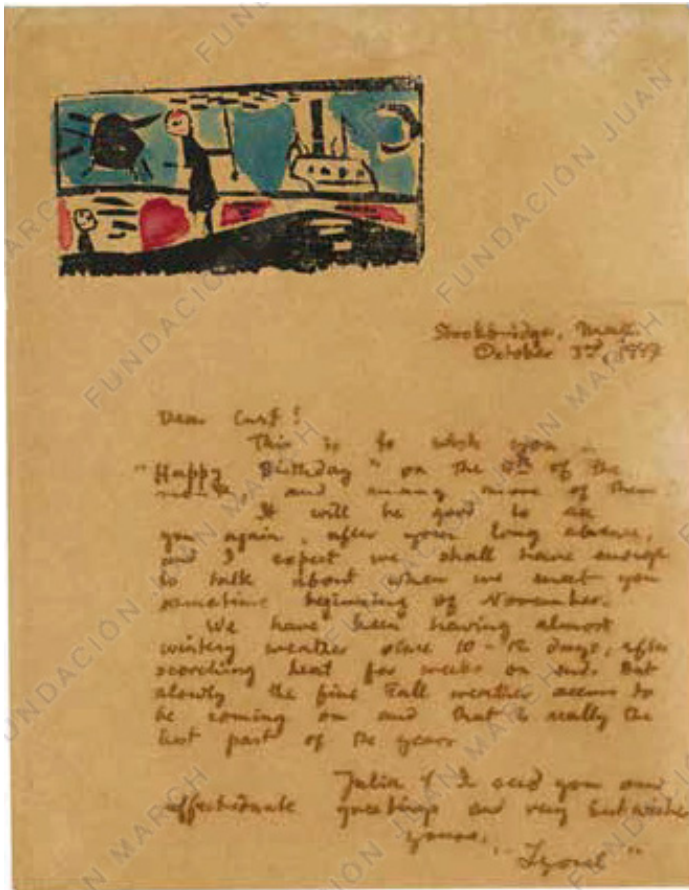 Stockbridge, Mass.
October 3rd, 1947
Dear Curt!
This is to wish you
"Happy Birthday" on the of the
month, and many more of them
It will be good to see
you again, after your long absence,
and I expect we shall have enough
to talk about when we meet you
sometime beginning of November.
We have been having almost
wintery weather since 10-12 days, after
scorching heat for weeks on end. But
slowly the fine Fall weather seems to
be coming on and that is really the
best part of the year.
Julia & I send you our
affectionate greetings and very best wishes
yours,
"Lyonel"
FUNDACIÓN JUAN MARCH